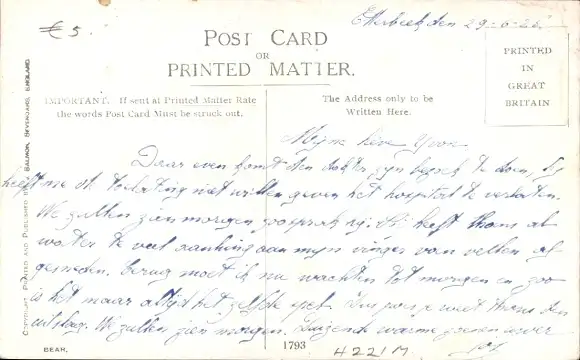 € 5
Etterbeek, den 29-6-22
POST CARD
OR
PRINTED MATTER.
PRINTED
IN
GREAT
BRITAIN
IMPORTANT. If sent at Printed Matter Rate
the words Post Card Must be struck out.
The Address only to be
Written Here.
Mijne lieve Yvon
Daar even komt den dokter zijn bezoek te doen, hij
heeft me de toelating niet willen geven het hospitaal te verlaten.
We zullen zien morgen zoo sprak hij. Hij heeft thans al
te veel aan mijn vinger van vellen af-
gesneden. moet ik nu wachten tot morgen en zoo
is het maar altijd het zelfde Dus je weet thans den
uitslag. We zullen zien morgen. Duizend warme zoenen
COPYRIGHT. PRINTED AND PUBLISHED BY SALMON, SEVENOAKS, ENGLAND.
BEAR.
1793
H221M